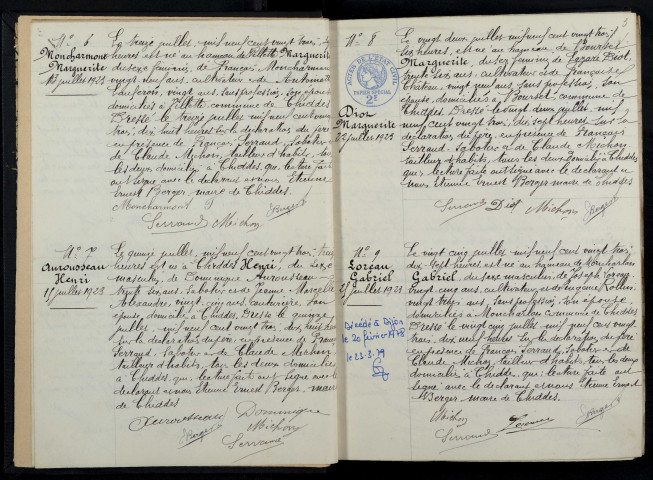 N° 6
Moncharmont
Marguerite
13 juillet 1923
Le treize juillet, mil neuf cent vingt trois,
heures est née au hameau de Marguerite
du sexe féminin, de François Moncharmont
vingt neuf ans, cultivateur et de Antoinette
vingt ans, sans profession, son épouse
domiciliés à commune de Chiddes
Dressé le treize juillet mil neuf cent vingt
trois, dix huit heures sur la déclaration du père
en présence de François Serraud, sabotier
et de Claude Michon, tailleur d'habits, tous
les deux domiciliés à Chiddes qui, lecture faite
ont signé avec le déclarant et nous Etienne
Ernest Berger maire de Chiddes.
Moncharmont
Serraud Michon Berger
N° 7
Aurousseau
Henri
15 juillet 1923
Le quinze juillet, mil neuf cent vingt trois,
heures est né à Chiddes Henri, du sexe
masculin, de Dominique Aurousseau
trente six ans, sabotier et de Jeanne Marcelle
Alexandre, vingt cinq ans, couturière son
épouse domiciliés à Chiddes. Dressé le quinze
juillet, mil neuf cent vingt trois, dix neuf heures
sur la déclaration du père en présence de François
Serraud, sabotier et de Claude Michon
tailleur d'habits, tous les deux domiciliés
à Chiddes, qui, lecture faite ont signé avec le
déclarant et nous Etienne Ernest Berger, maire
de Chiddes
Aurousseau Dominique
Berger Michon
Serraud
N° 8
PAPIER SPÉCIAL
2F
Diot
Marguerite
22 juillet 1923
Le vingt deux juillet mil neuf cent vingt trois
heures, est née au hameau de
Marguerite, du sexe féminin de Lazare Diot,
trente six ans, cultivateur et de Françoise
Château, vingt neuf ans, sans profession, son
épouse, domiciliés à commune de
Chiddes. Dressé le vingt deux juillet mil
neuf cent vingt trois, dix sept heures sur la
déclaration du père, en présence de François
Serraud, sabotier et de Claude Michon
tailleur d'habits, tous les deux domiciliés à Chiddes
qui, lecture faite ont signé avec le déclarant et
nous Etienne Ernest Berger maire de Chiddes
Serraud Diot Michon Berger
N° 9
Loreau
Gabriel
25 juillet 1923
Décédé à Dijon
le 20 février 1978
le 23.3.79
Le vingt cinq juillet mil neuf cent vingt trois
dix sept heures est né au hameau de Moncharlon
Gabriel du sexe masculin, de Joseph Loreau
vingt cinq ans, cultivateur et de Rollin
vingt ans, sans profession, son épouse,
domiciliés à Moncharlon commune de Chiddes
Dressé le vingt cinq juillet mil neuf cent vingt
trois, dix neuf heures sur la déclaration du père
en présence de François Serraud, sabotier et de
Claude Michon, tailleur d'habits, tous les deux
domiciliés à Chiddes, qui, lecture faite ont
signé avec le déclarant et nous Etienne Ernest
Berger maire de Chiddes.
Michon
Serraud Loreau Berger